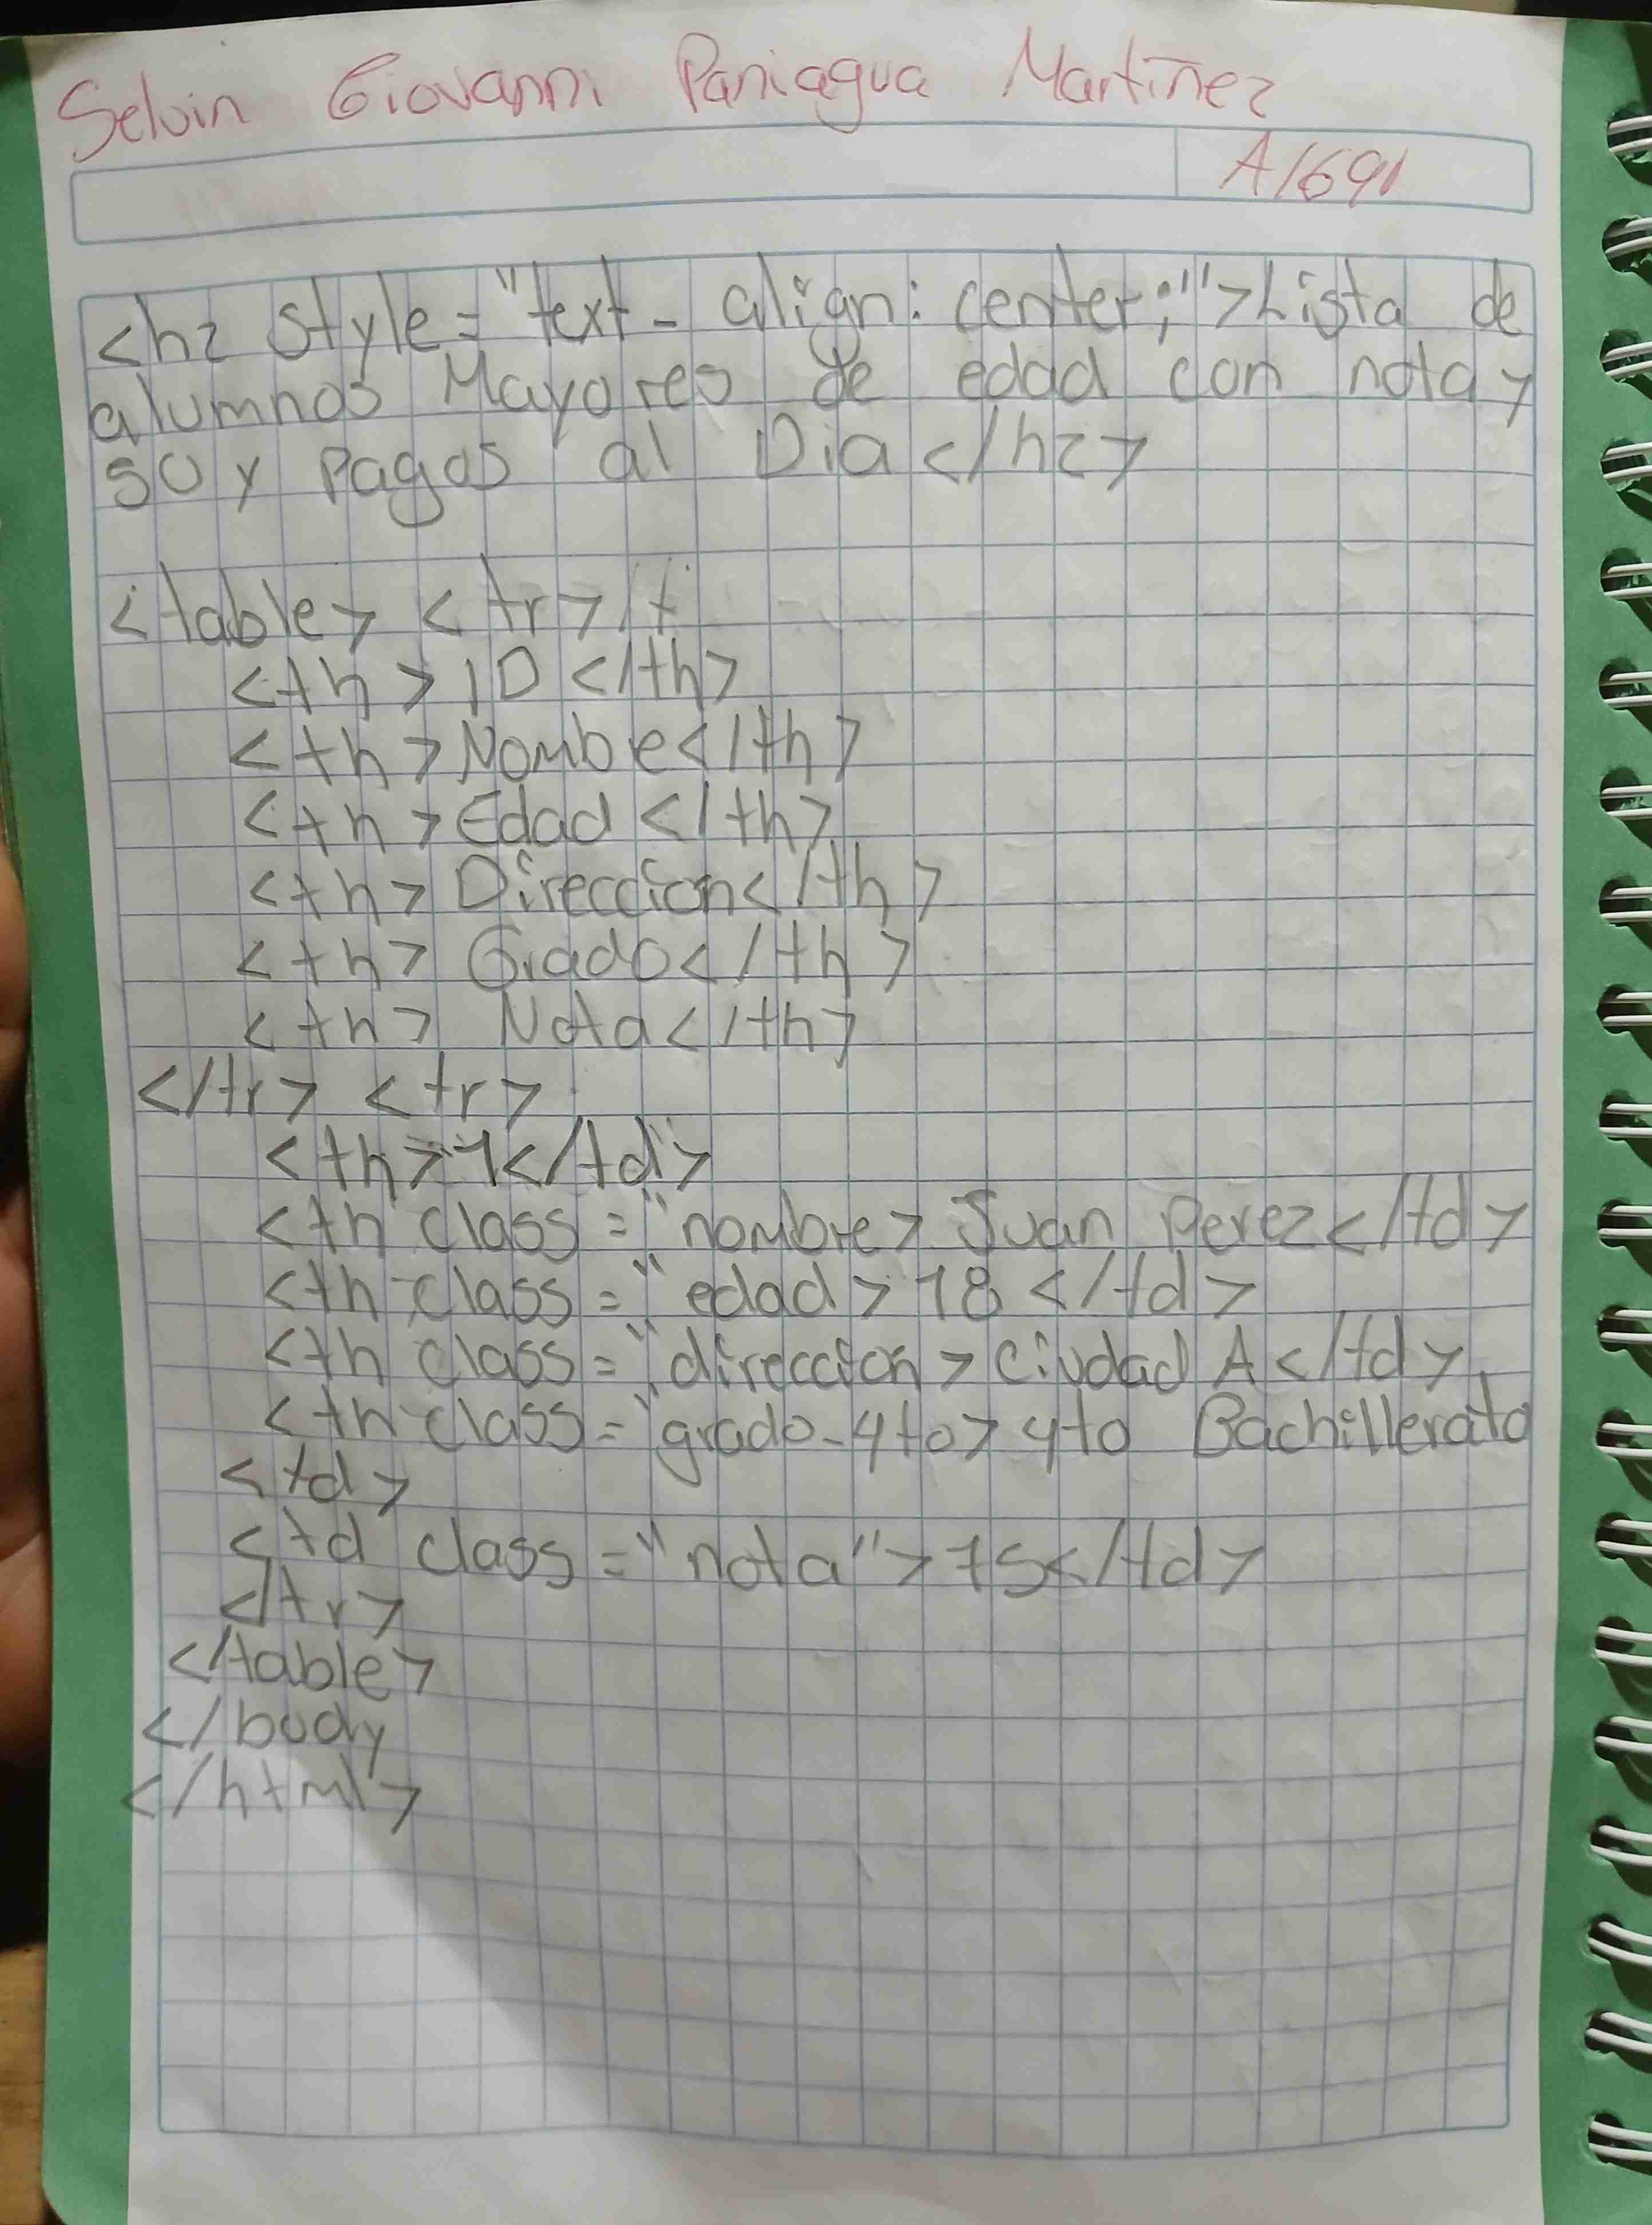 Selvin Giovanni Paniagua Martinez
A1691
<h2 style="text- align: center;">Lista de
alumnos Mayores de edad con nota >
50 y Pagos al Dia</h2>
<table> <tr>
<th>ID</th>
<th>Nombe</th>
<th>Edad</th>
<th>Direccion</th>
<th>Grado</th>
<th> Nota</th>
</tr> <tr>
<th>1</td>
<th class="nombre> Juan perez</td>
<th class="edad>18 </td>
<th class="direccion>Ciudad A</td>
<th class="grado-4to>4to Bachillerato
<td>
<td class="nota">75</td>
</tr>
</table>
</body
</html>